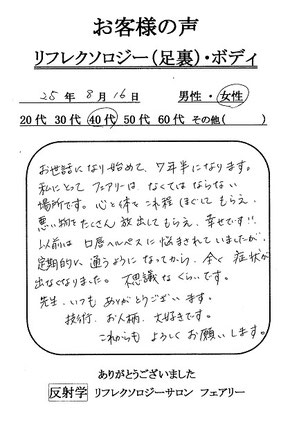 お客様の声
リフレクソロジー(足裏)・ボディ
25 年 8 月 16 日 男性 ・ 女性
20代 30代 40代 50代 60代 その他( )
お世話になり始めて、7年半になります。
私にとって フェアリーは、なくてはならない
場所です。心と体をこれ程 ほぐしてもらえ、
悪い物をたくさん 放出してもらえ、幸せです!!
以前は 口唇ヘルペスに悩まされていましたが、
定期的に 通うようになってから、全く 症状が
出なくなりました。不思議なくらいです。
先生、いつも ありがとうございます。
技術、お人柄、大好きです。
これからも よろしく お願いします。
ありがとうございました
反射学 リフレクソロジーサロン フェアリー